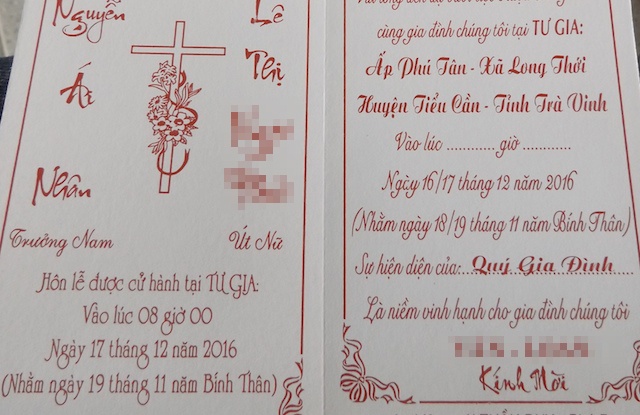 Nguyễn
Ái
Nhân
Trưởng Nam
Lê
Thị
Út Nữ
Hôn lễ được cử hành tại TƯ GIA:
Vào lúc 08 giờ 00
Ngày 17 tháng 12 năm 2016
(Nhằm ngày 19 tháng 11 năm Bính Thân)
cùng gia đình chúng tôi tại TƯ GIA:
Ấp Phú Tân - Xã Long Thới
Huyện Tiểu Cần - Tỉnh Trà Vinh
Vào lúc ............ giờ ............
Ngày 16/17 tháng 12 năm 2016
(Nhằm ngày 18/19 tháng 11 năm Bính Thân)
Sự hiện diện của: Quý Gia Đình
Là niềm vinh hạnh cho gia đình chúng tôi
Kính Mời